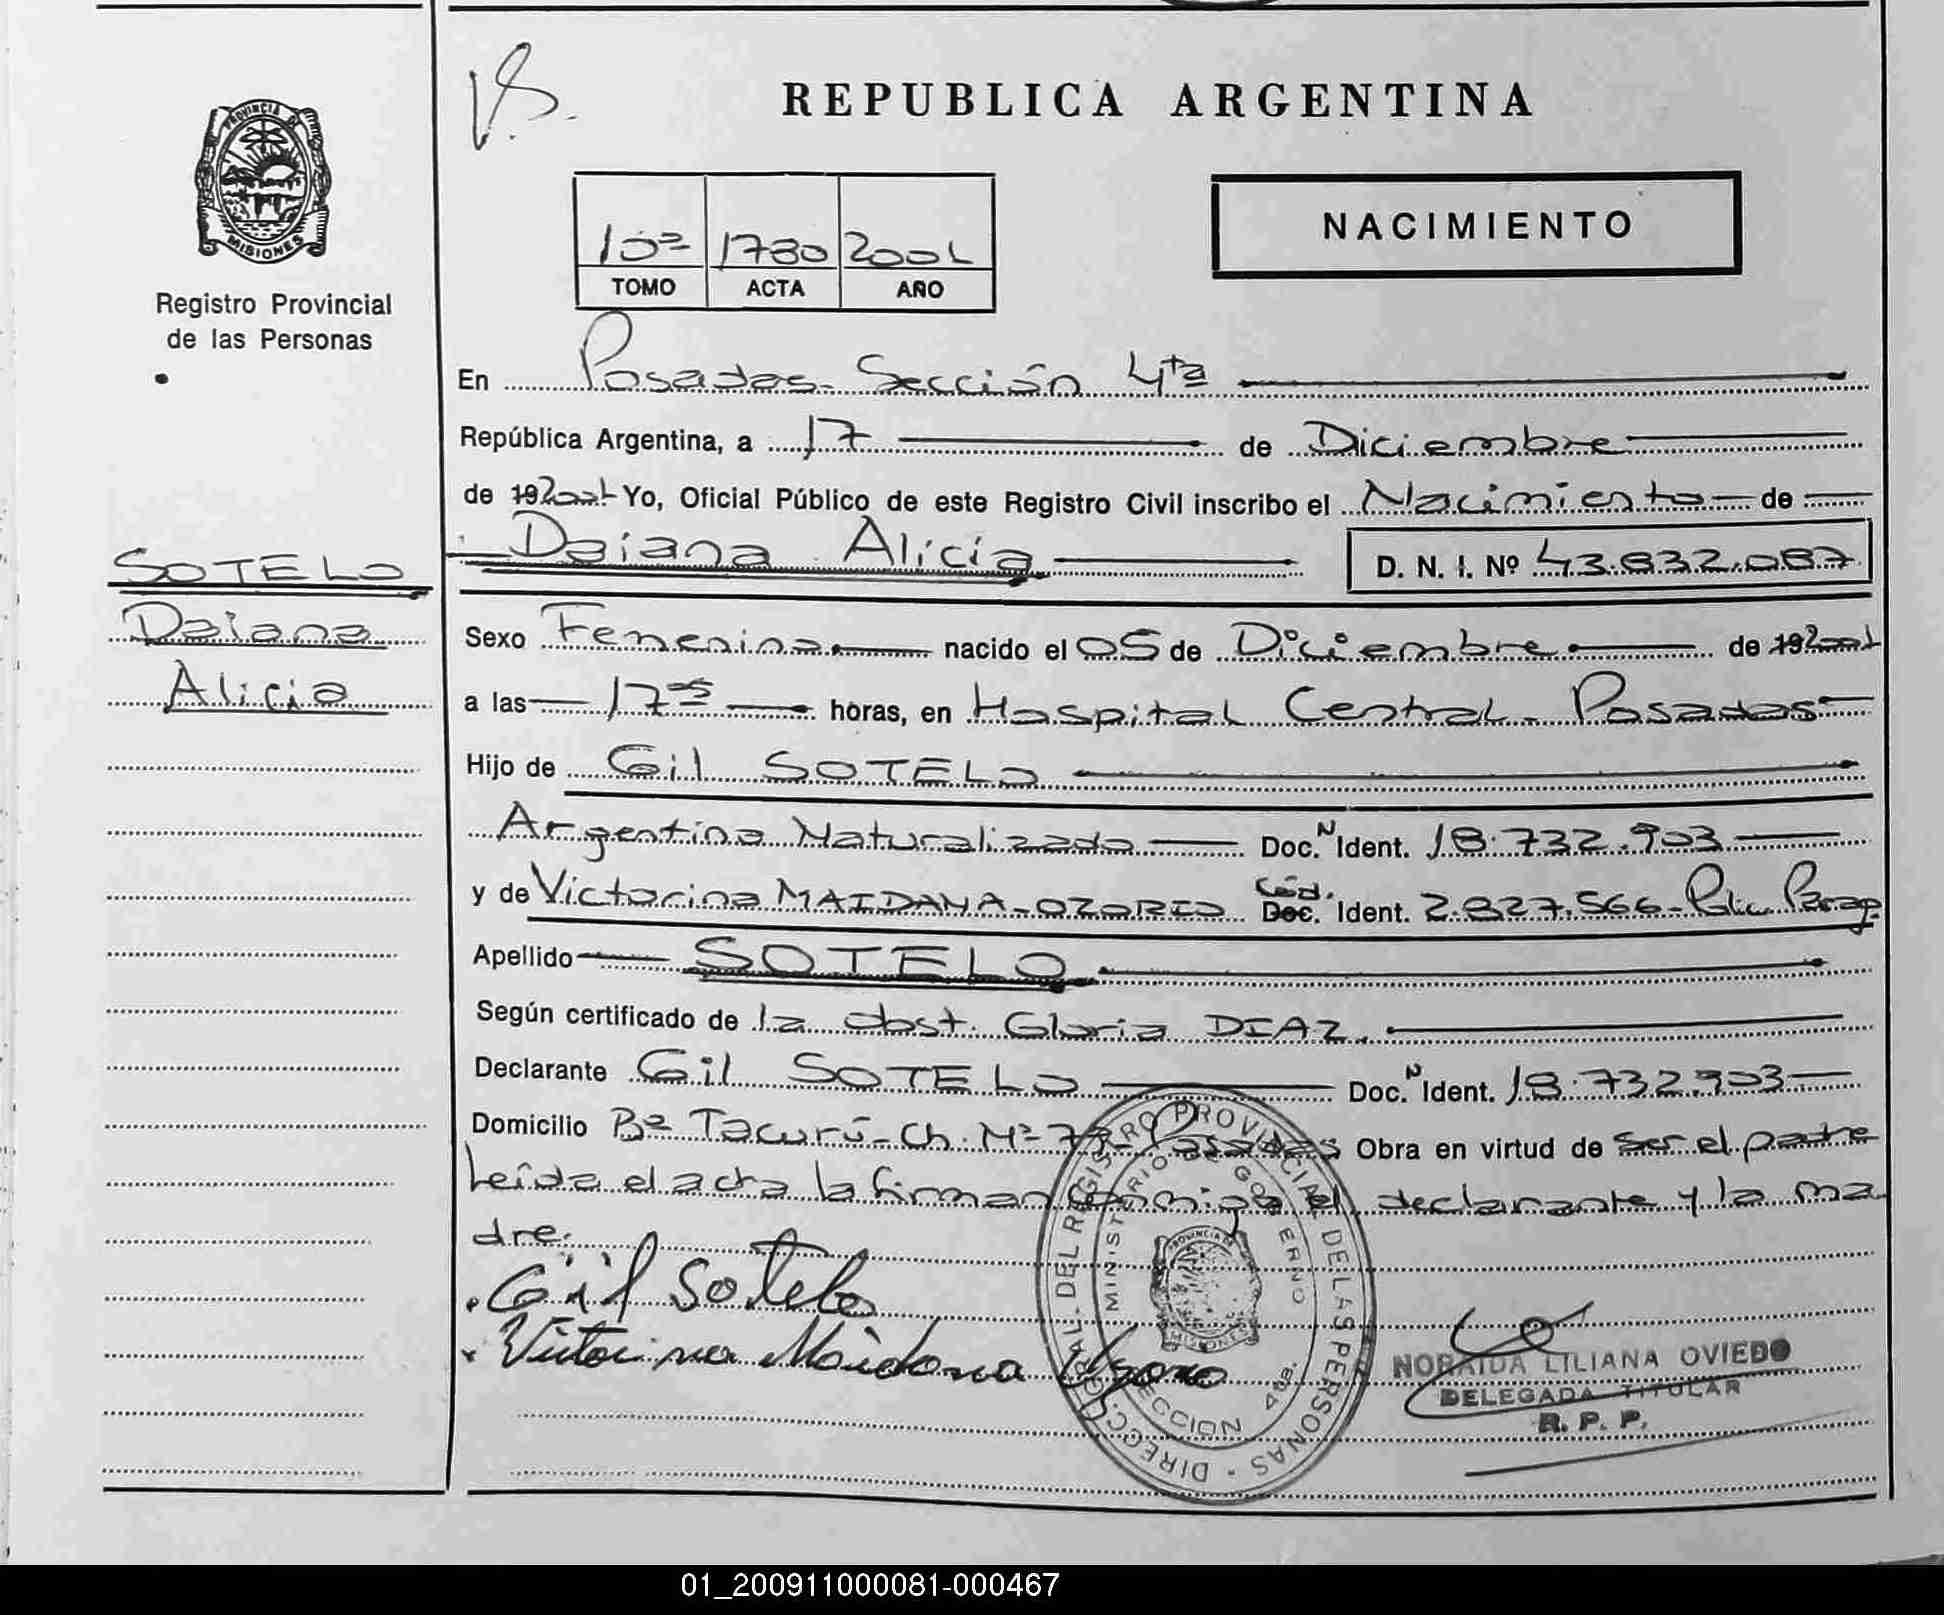 PROVINCIA DE
MISIONES
Registro Provincial
de las Personas
SOTELO
Daiana
Alicia
REPUBLICA ARGENTINA
NACIMIENTO
10º 1780 2001
TOMO ACTA AÑO
En Posadas - Sección 4ta
República Argentina, a 17 de Diciembre
de 19 2001 Yo, Oficial Público de este Registro Civil inscribo el Nacimiento de
Daiana Alicia D. N. I. Nº 43.832.087
Sexo Femenino nacido el 05 de Diciembre de 19 2001
a las 17 horas, en Hospital Central - Posadas
Hijo de Gil SOTELO
Argentino Naturalizado Doc. N Ident. 18.732.903
y de Victorina MAIDANA - OZORIO Doc. Céd. Ident. 2.827.566 - Pol. Parag
Apellido SOTELO
Según certificado de la obst. Gloria DIAZ.
Declarante Gil SOTELO Doc. N Ident. 18.732.903
Domicilio Bº Tacurú - Ch. Nº Posadas Obra en virtud de ser el padre
Leída el acta la firman conmigo el declarante y la ma
dre.
Gil Sotelo
Victorina Maidana Ozorio
DIRECC. GRAL. DEL REGISTRO PROVINCIAL DE LAS PERSONAS
MINISTERIO DE GOBIERNO
PROVINCIA DE
MISIONES
SECCION 4ta.
NORAIDA LILIANA OVIEDO
DELEGADA TITULAR
R. P. P.
01_200911000081-000467